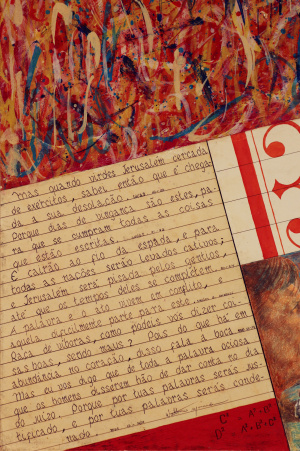 Mas quando virdes Jerusalém cercada
de exércitos, sabei então que é chega-
da a sua desolação.
Porque dias de vingança são estes, pa-
ra que se cumpram todas as coisas
que estão escritas.
E cairão ao fio da espada, e para
todas as nações serão levados cativos;
e Jerusalém será pisada pelos gentios,
até que os tempos deles se completem.
A palavra e o ato vivem em conflito, e
aquela dificilmente parte para este
Raça de víboras, como podeis vós dizer coi-
sas boas, sendo maus? Pois do que há em
abundância no coração, disso fala a boca
Mas eu vos digo que de toda a palavra ociosa
que os homens disserem hão de dar conta no dia
do juízo. Porque por tuas palavras serás jus-
tificado, e por tuas palavras serás conde-
nado